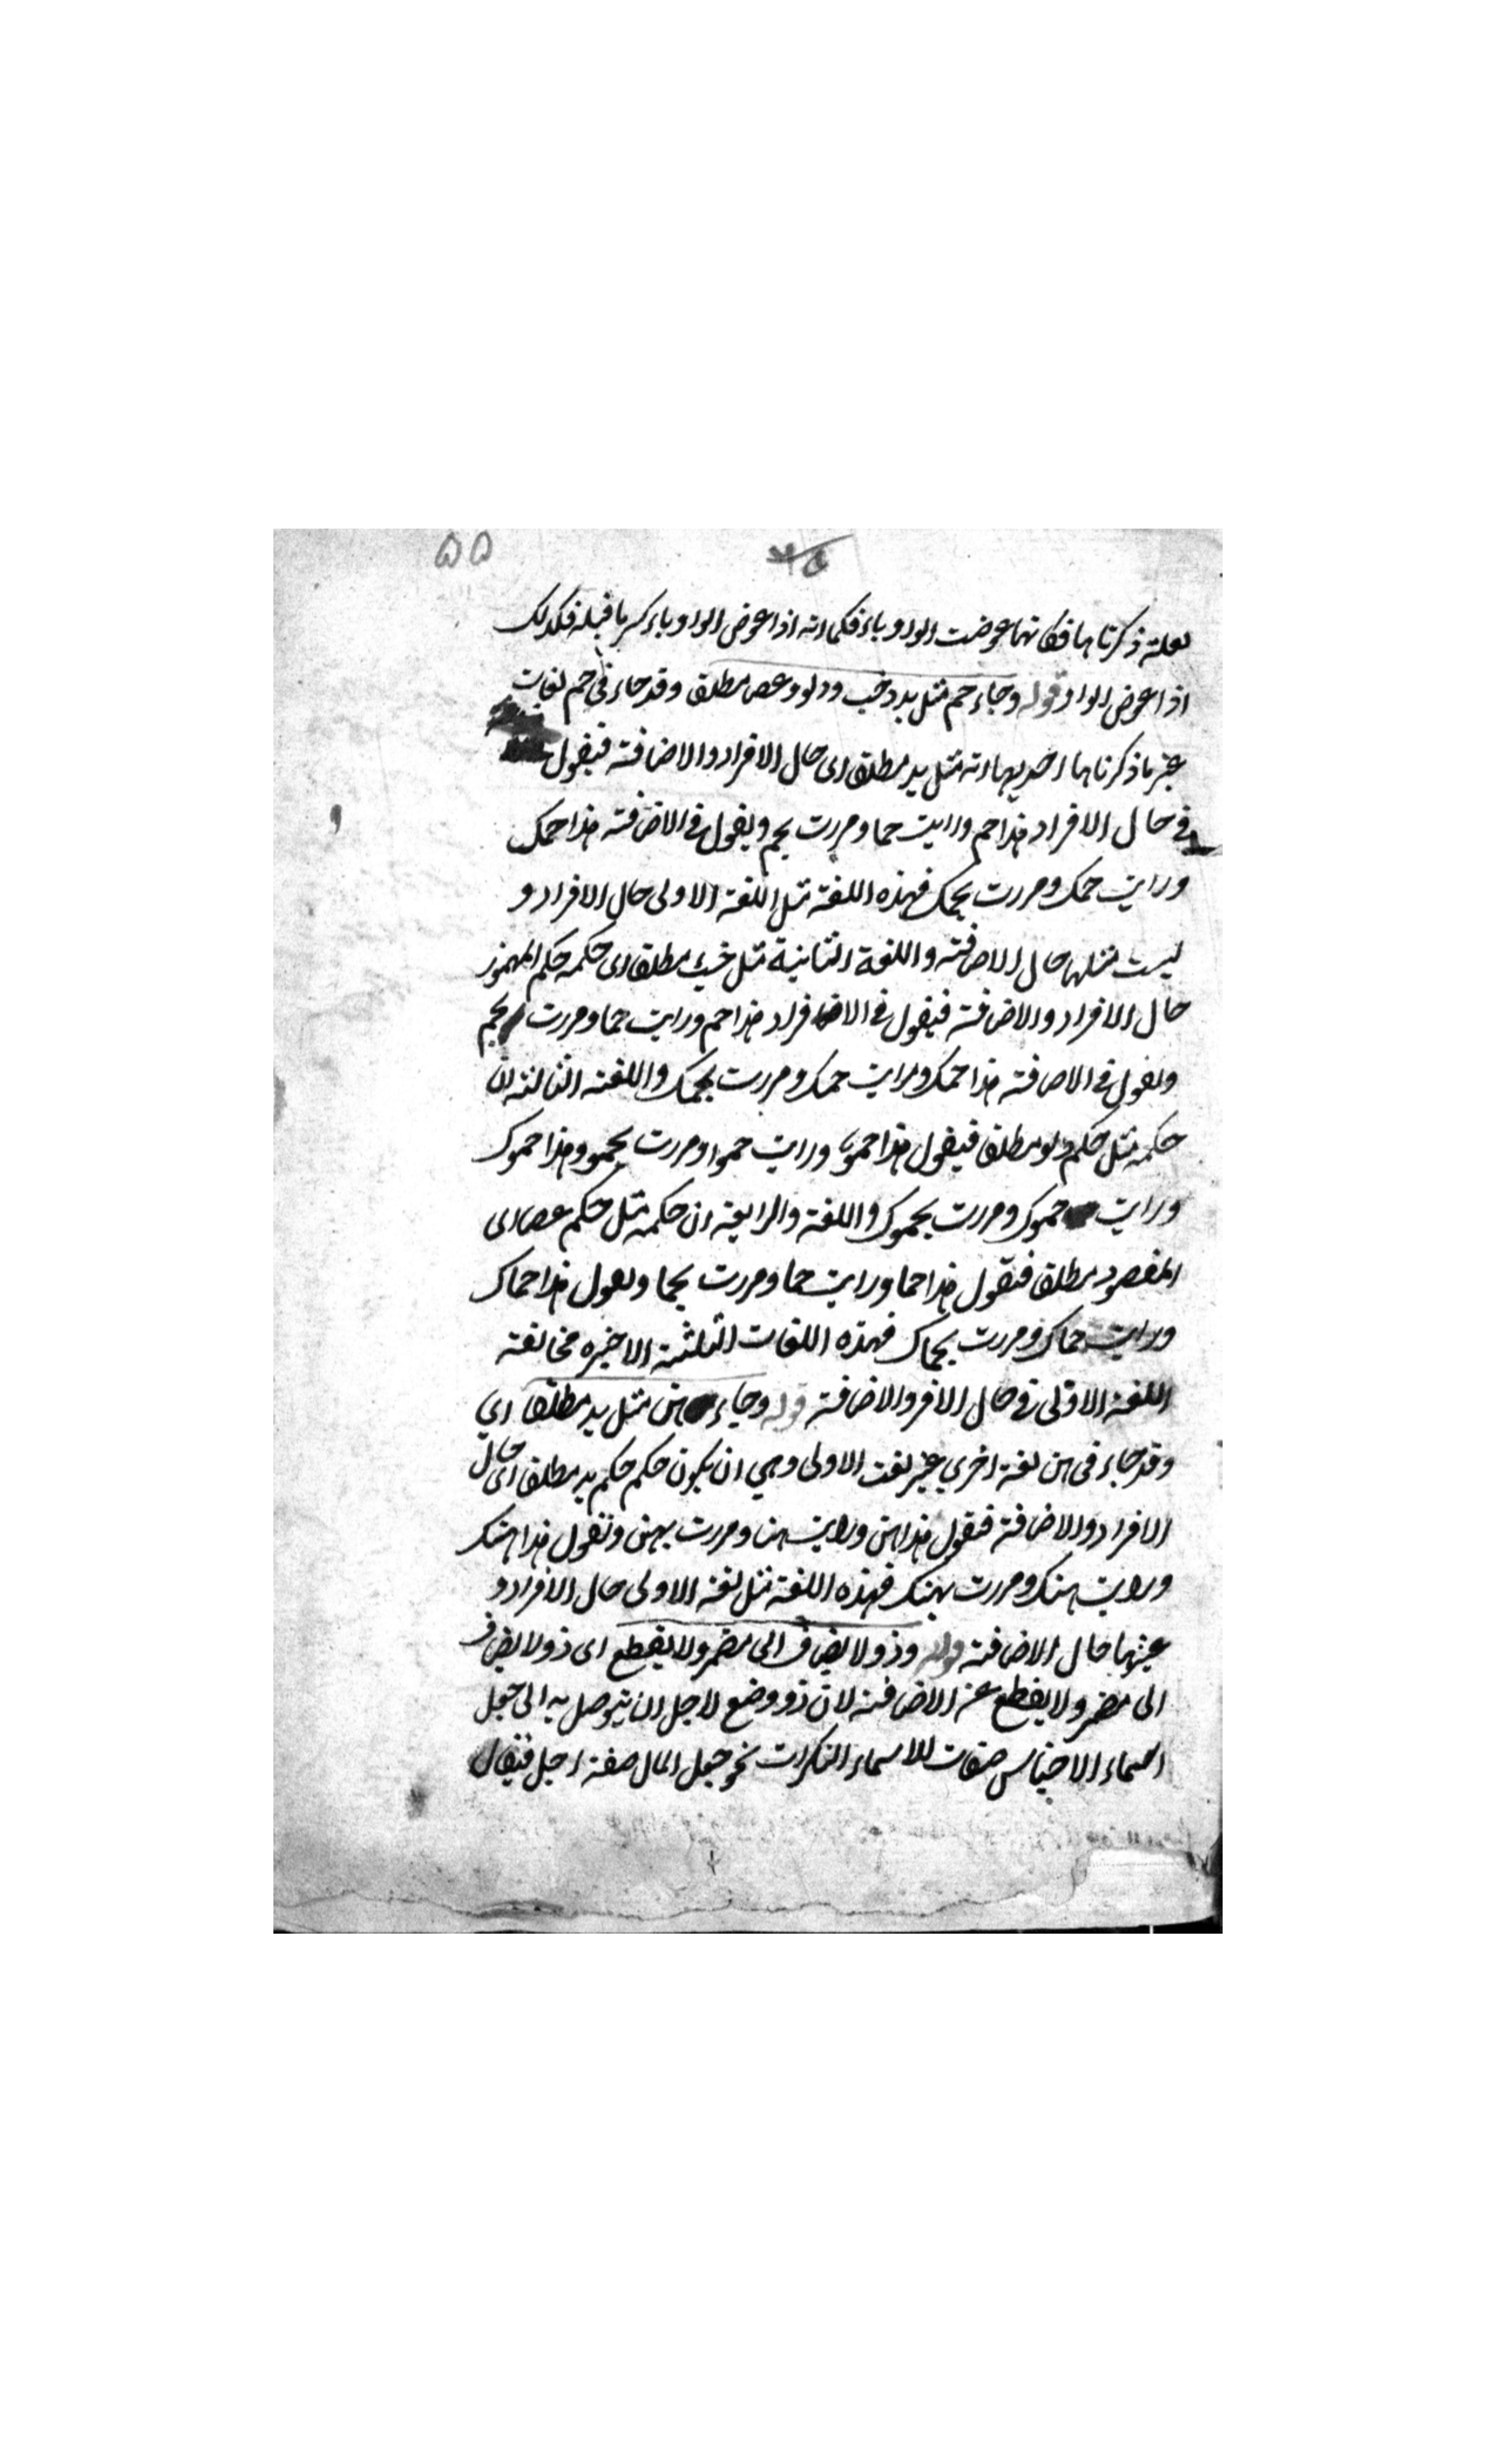 ۵۵
لعلة ذكرناها فكانها عوضت الواو ياء فكما انه اذا عوض الواو ياء كسر ما قبله فكذلك
اذا عوض الواو قوله وجاء حم مثل يد وخب ودلو وعصا مطلقا وقد جاء في حم لغات
غير ما ذكرناها احديها انه مثل يد مطلقا اى حال الافراد والاضافة فيقول
في حال الافراد هذا حم ورايت حما ومررت بحم ويقول في الاضافة هذا حمك
ورايت حمك ومررت بحمك فهذه اللغة مثل اللغة الاولى حال الافراد و
ليست مثلها حال الاضافة واللغة الثانية مثل خبء مطلقا اى حكمه حكم المهموز
حال الافراد والاضافة فيقول في الافراد هذا حم ورايت حما ومررت بحم
ويقول في الاضافة هذا حمك ورايت حمك ومررت بحمك واللغة الثالثة ان
حكمه مثل حكم دلو مطلقا فيقول هذا حمو ورايت حموا ومررت بحمو وهذا حموك
ورايت حموك ومررت بحموك واللغة والرابعة ان حكمه مثل حكم عصا اى
المقصور مطلقا فتقول هذا حما ورايت حما ومررت بحما وتقول هذا حماك
ورايت حماك ومررت بحماك فهذه اللغات الثلثة الاخيره مخالفة
اللغة الاولى في حال الافر والاضافة قوله وجاء هن مثل يد مطلقا اي
وقد جاء في هن لغة اخرى غير لغت الاولى وهي ان يكون حكم حكم يد مطلقا اى حال
الافراد والاضافة فتقول هذا هن ورايت هنا ومررت بهن وتقول هذا هنك
ورايت هنك ومررت بهنك فهذه اللغة مثل لغة الاولى حال الافراد و
غيرها حال الاضافة قوله وذو لا يضاف الى مضمر ولا يقطع اى ذو لا يضاف
الى مضمر ولا يقطع عن الاضافة لان ذو وضع لاجل ان يتوصل به الى جعل
اسماء الاجناس صفات للاسماء النكرات نحو جعل المال صفة رجل فيقال